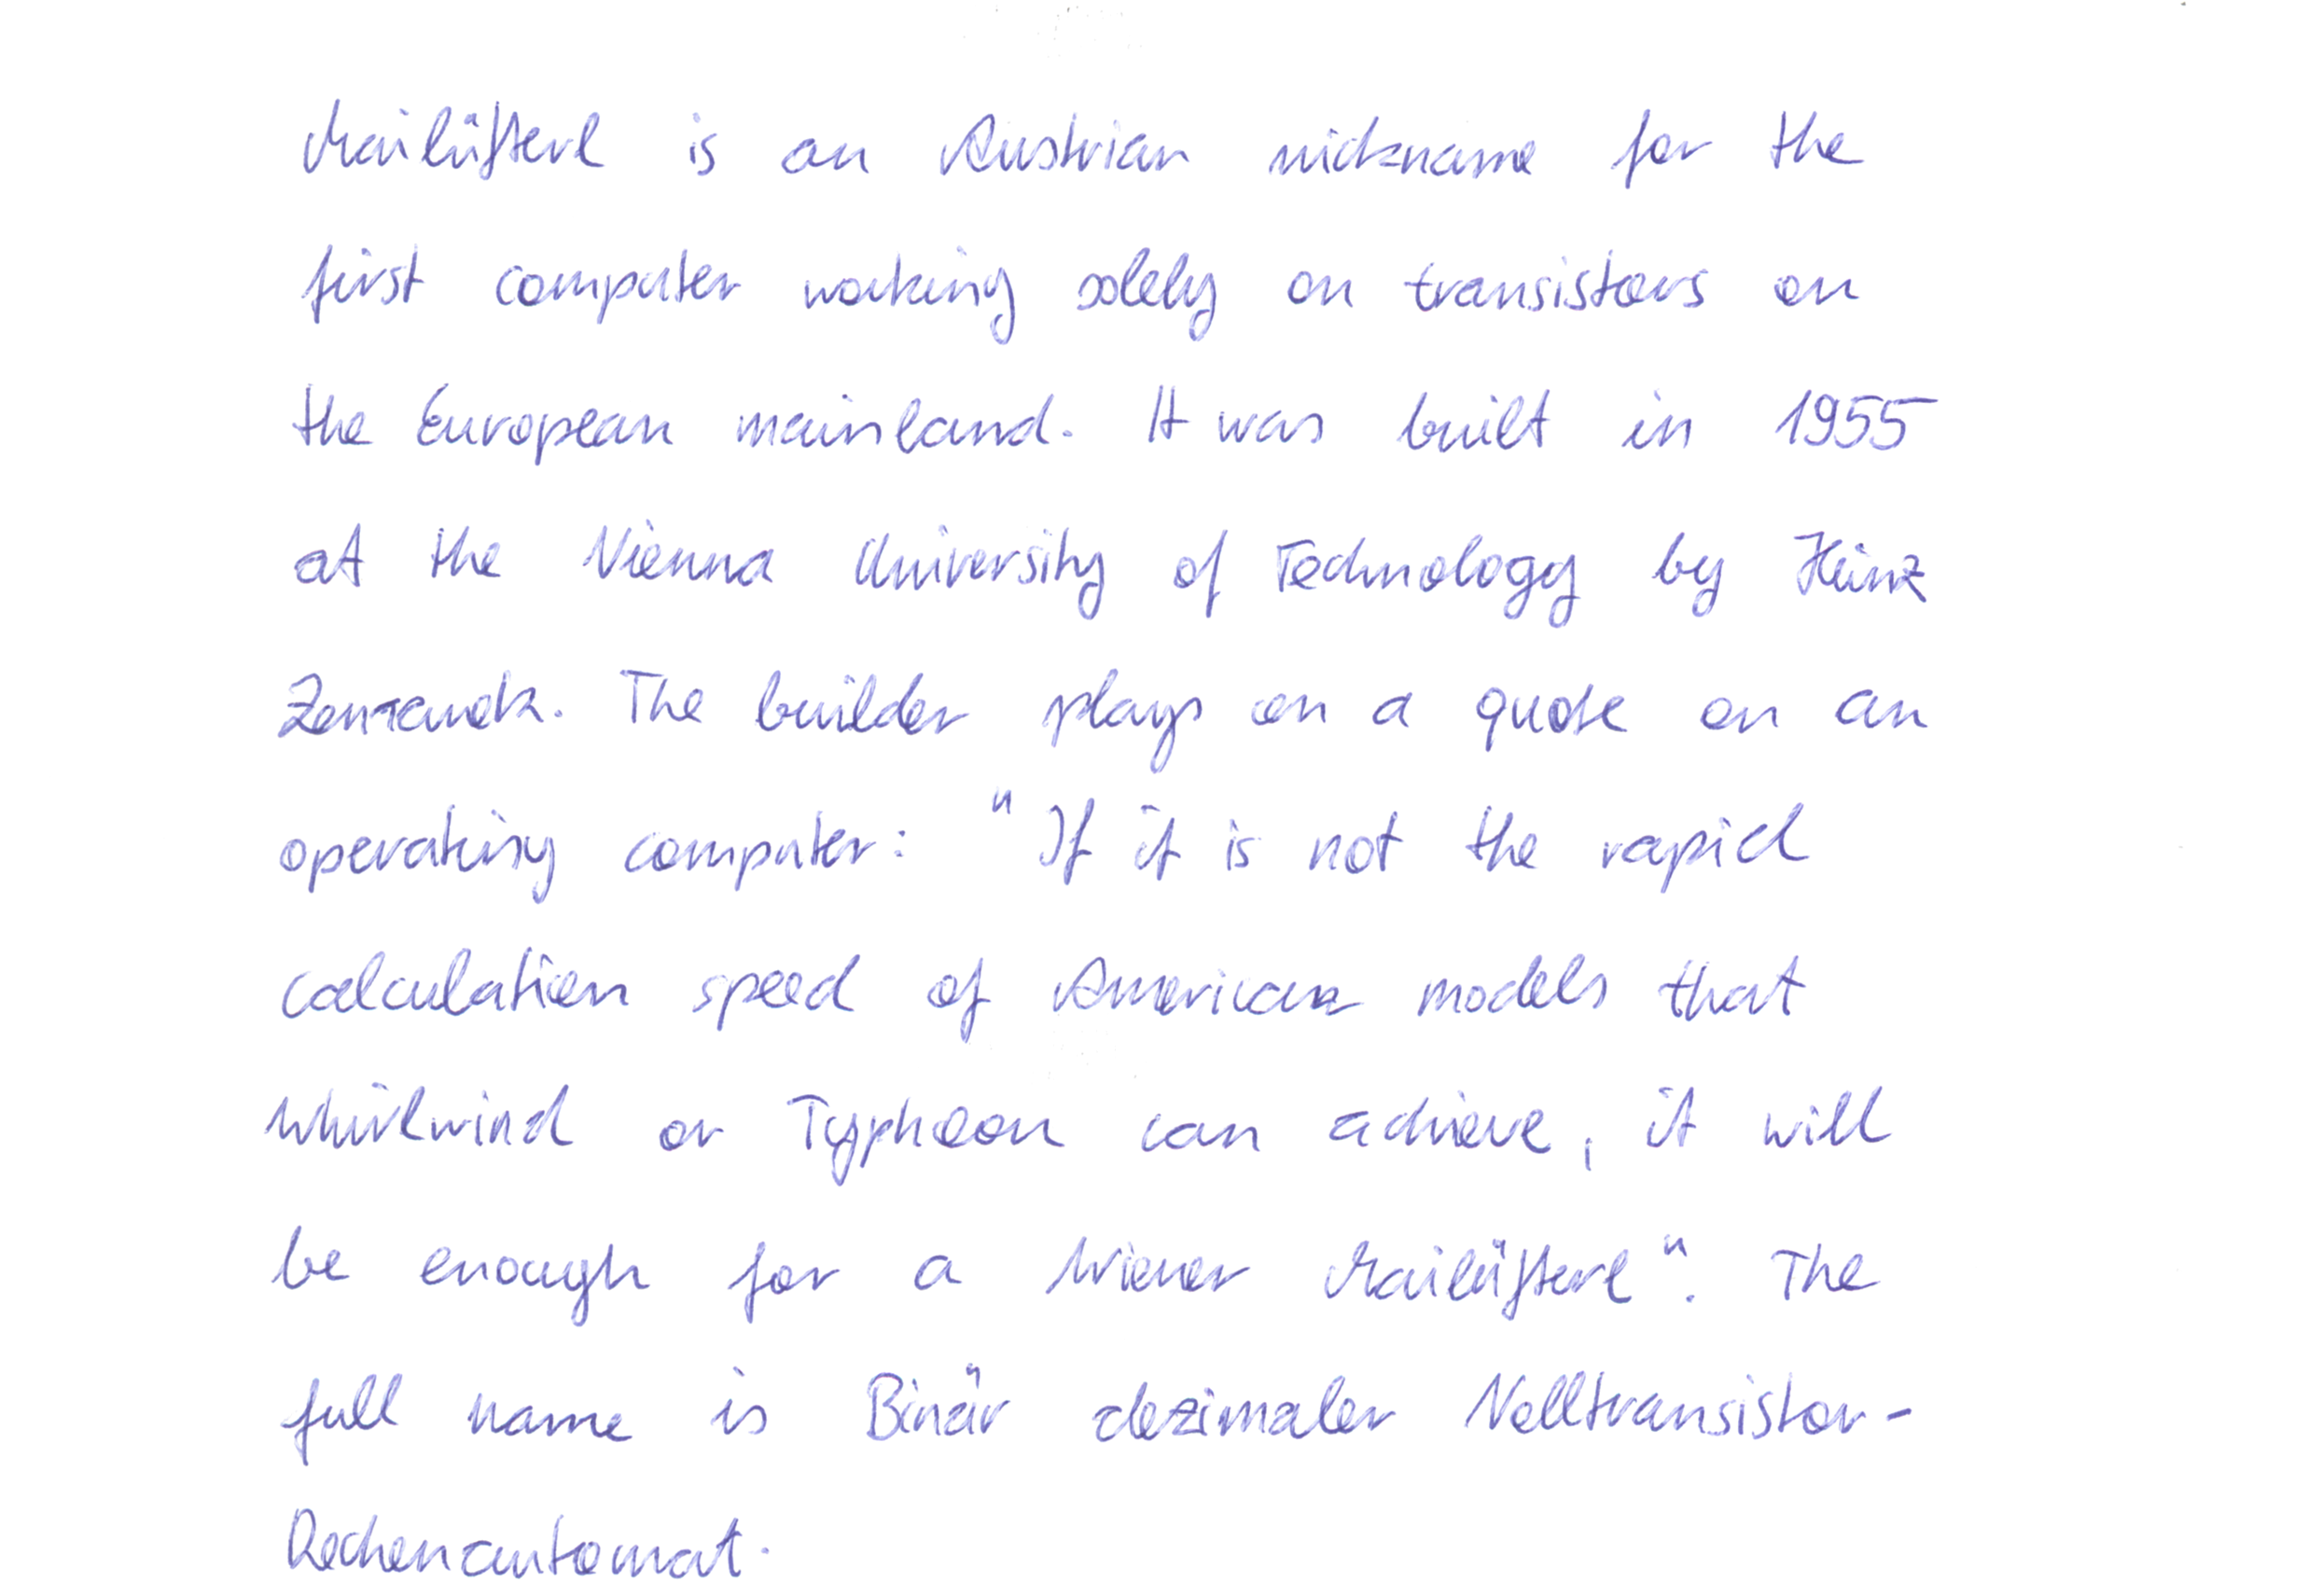 Mailüfterl is an Austrian nickname for the
first computer working solely on transistors on
the European mainland. It was built in 1955
at the Vienna University of Technology by Heinz
Zemanek. The builder plays on a quote on an
operating computer: "If it is not the rapid
calculation speed of American models that
Whirlwind or Typhoon can achieve, it will
be enough for a Wiener Mailüfterl". The
full name is Binär dezimaler Volltransistor-
Rechenautomat.